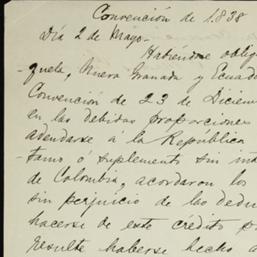 Convención de 1.838
Día 2 de Mayo.-
Habiéndose oblig
quela, Nueva Granada y Ecuad
Convención de 23 de Diciem
en las debidas proporciones
adendarse á la República
tamo ó suplemento sin int
de Colombia, acordaron los
sin perjuicio de las dedu
hacerse de este crédito p
resulte haberse hecho a